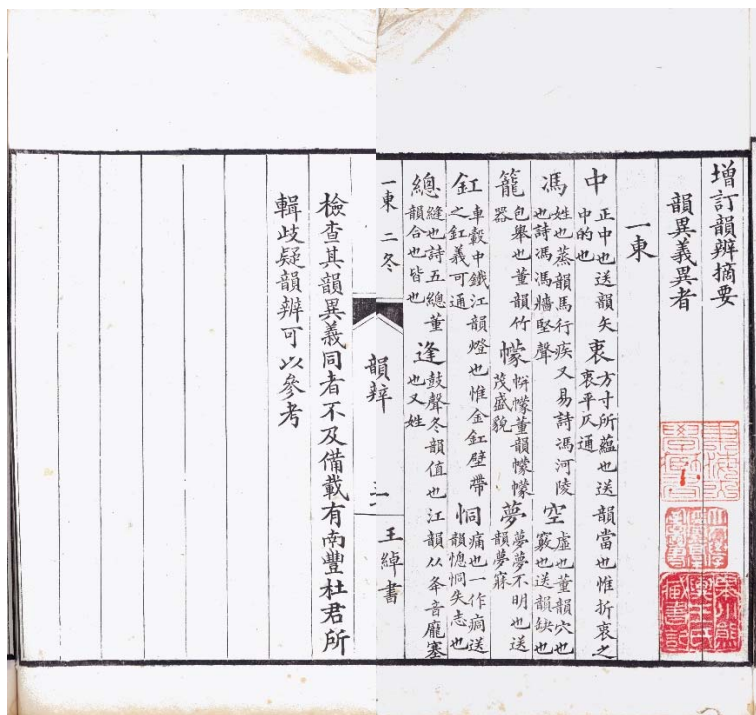 增訂韻辨摘要
韻異義異者
一東
中正中也送韻矢中的也衷方寸所蘊也送韻當也惟折衷之衷平仄通
馮姓也蒸韻馬行疾又易詩馮河陵也詩馮馮牆堅聲空虛也董韻穴也竅也送韻缺也
籠包舉也董韻竹器幪帡幪董韻幪幪茂盛貌夢夢夢不明也送韻夢寐
釭車轂中鐵江韻燈也惟金釭壁帶之釭義可通恫痛也一作痌送韻憁恫失志也
總縫也詩五總董韻合也皆也逢鼓聲冬韻值也江韻从夆音龐塞也又姓
一東 二冬 韻辨 一 王綽書
檢查其韻異義同者不及備載有南豐杜君所
輯歧疑韻辨可以參考